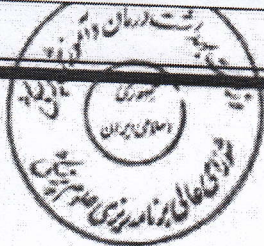 بهداشت درمان و آموزش پزشکی
جمهوری
اسلامی ایران
شورای عالی برنامه ریزی علوم پزشکی